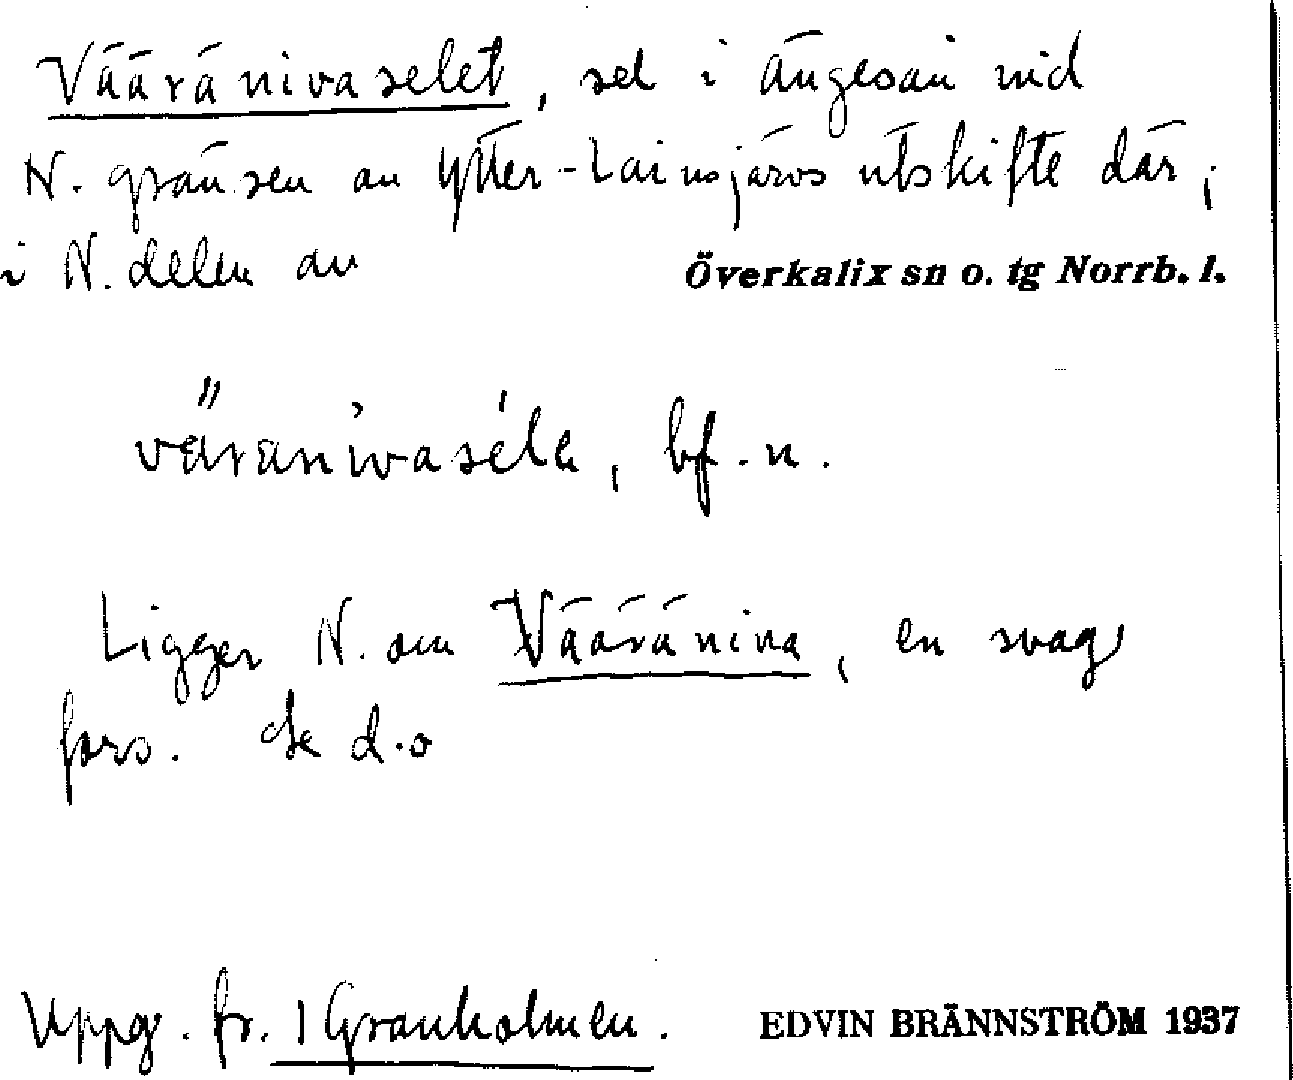 Vääränivaselet, sel i Ängesån vid
N. gränsen av Ytter-Lainejärvs utskifte där;
i N. delen av Överkalix sn o. tg Norrb. l.
bf. n.
Ligger N. om Vääräniva, en svag
fors. Se d. o
Uppg. fr. 1 Granholmen. EDVIN BRÄNNSTRÖM 1937